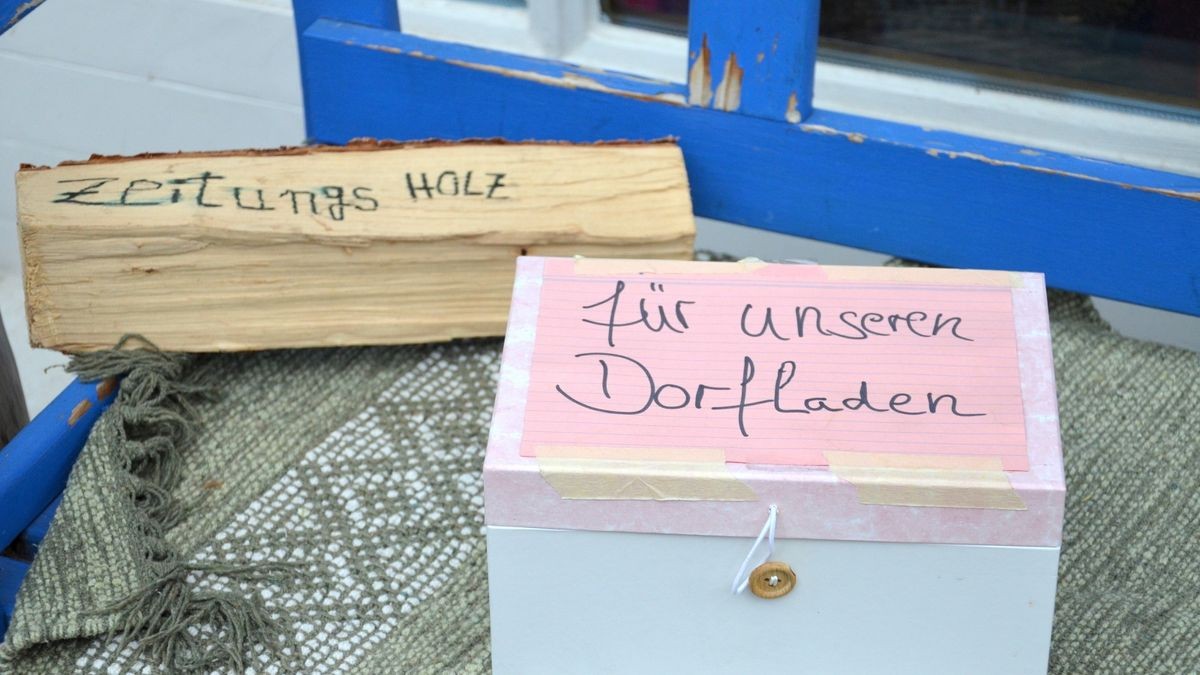 Zeitungs HOLZ
für unseren
Dorfladen